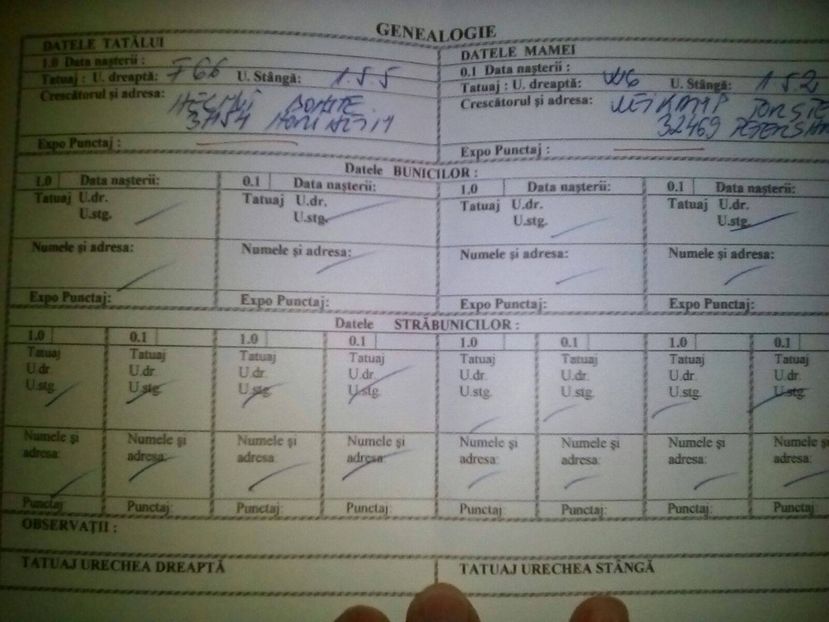 GENEALOGIE
DATELE TATĂLUI
1.0 Data nașterii :
Tatuaj : U. dreaptă: F66 U. Stângă: 1.5 5
Crescătorul și adresa:
Expo Punctaj :
DATELE MAMEI
0.1 Data nașterii :
Tatuaj : U. dreaptă: W6 U. Stângă: 1 5 2
Crescătorul și adresa:
32469
Expo Punctaj :
Datele BUNICILOR :
1.0 Data nașterii: 0.1 Data nașterii: 1.0 Data nașterii: 0.1 Data nașterii:
Tatuaj U.dr. Tatuaj U.dr. Tatuaj U.dr. Tatuaj U.dr.
U.stg. U.stg. U.stg. U.stg.
Numele și adresa: Numele și adresa: Numele și adresa: Numele și adresa:
Expo Punctaj: Expo Punctaj: Expo Punctaj: Expo Punctaj:
Datele STRĂBUNICILOR :
1.0 0.1 1.0 0.1 1.0 0.1 1.0 0.1
Tatuaj Tatuaj Tatuaj Tatuaj Tatuaj Tatuaj Tatuaj Tatuaj
U.dr. U.dr. U.dr. U.dr. U.dr. U.dr. U.dr. U.dr.
U.stg. U.stg. U.stg. U.stg. U.stg. U.stg. U.stg. U.stg.
Numele și Numele și Numele și Numele și Numele și Numele și Numele și Numele și
adresa: adresa: adresa: adresa: adresa: adresa: adresa: adresa:
Punctaj: Punctaj: Punctaj: Punctaj: Punctaj: Punctaj: Punctaj: Punctaj:
OBSERVAȚII :
TATUAJ URECHEA DREAPTĂ TATUAJ URECHEA STÂNGĂ